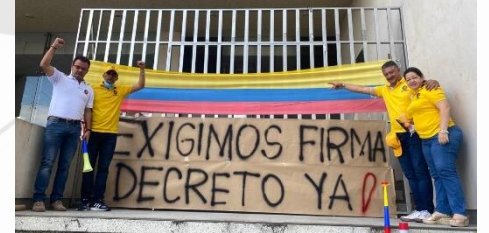 EXIGIMOS FIRMA
DECRETO YA